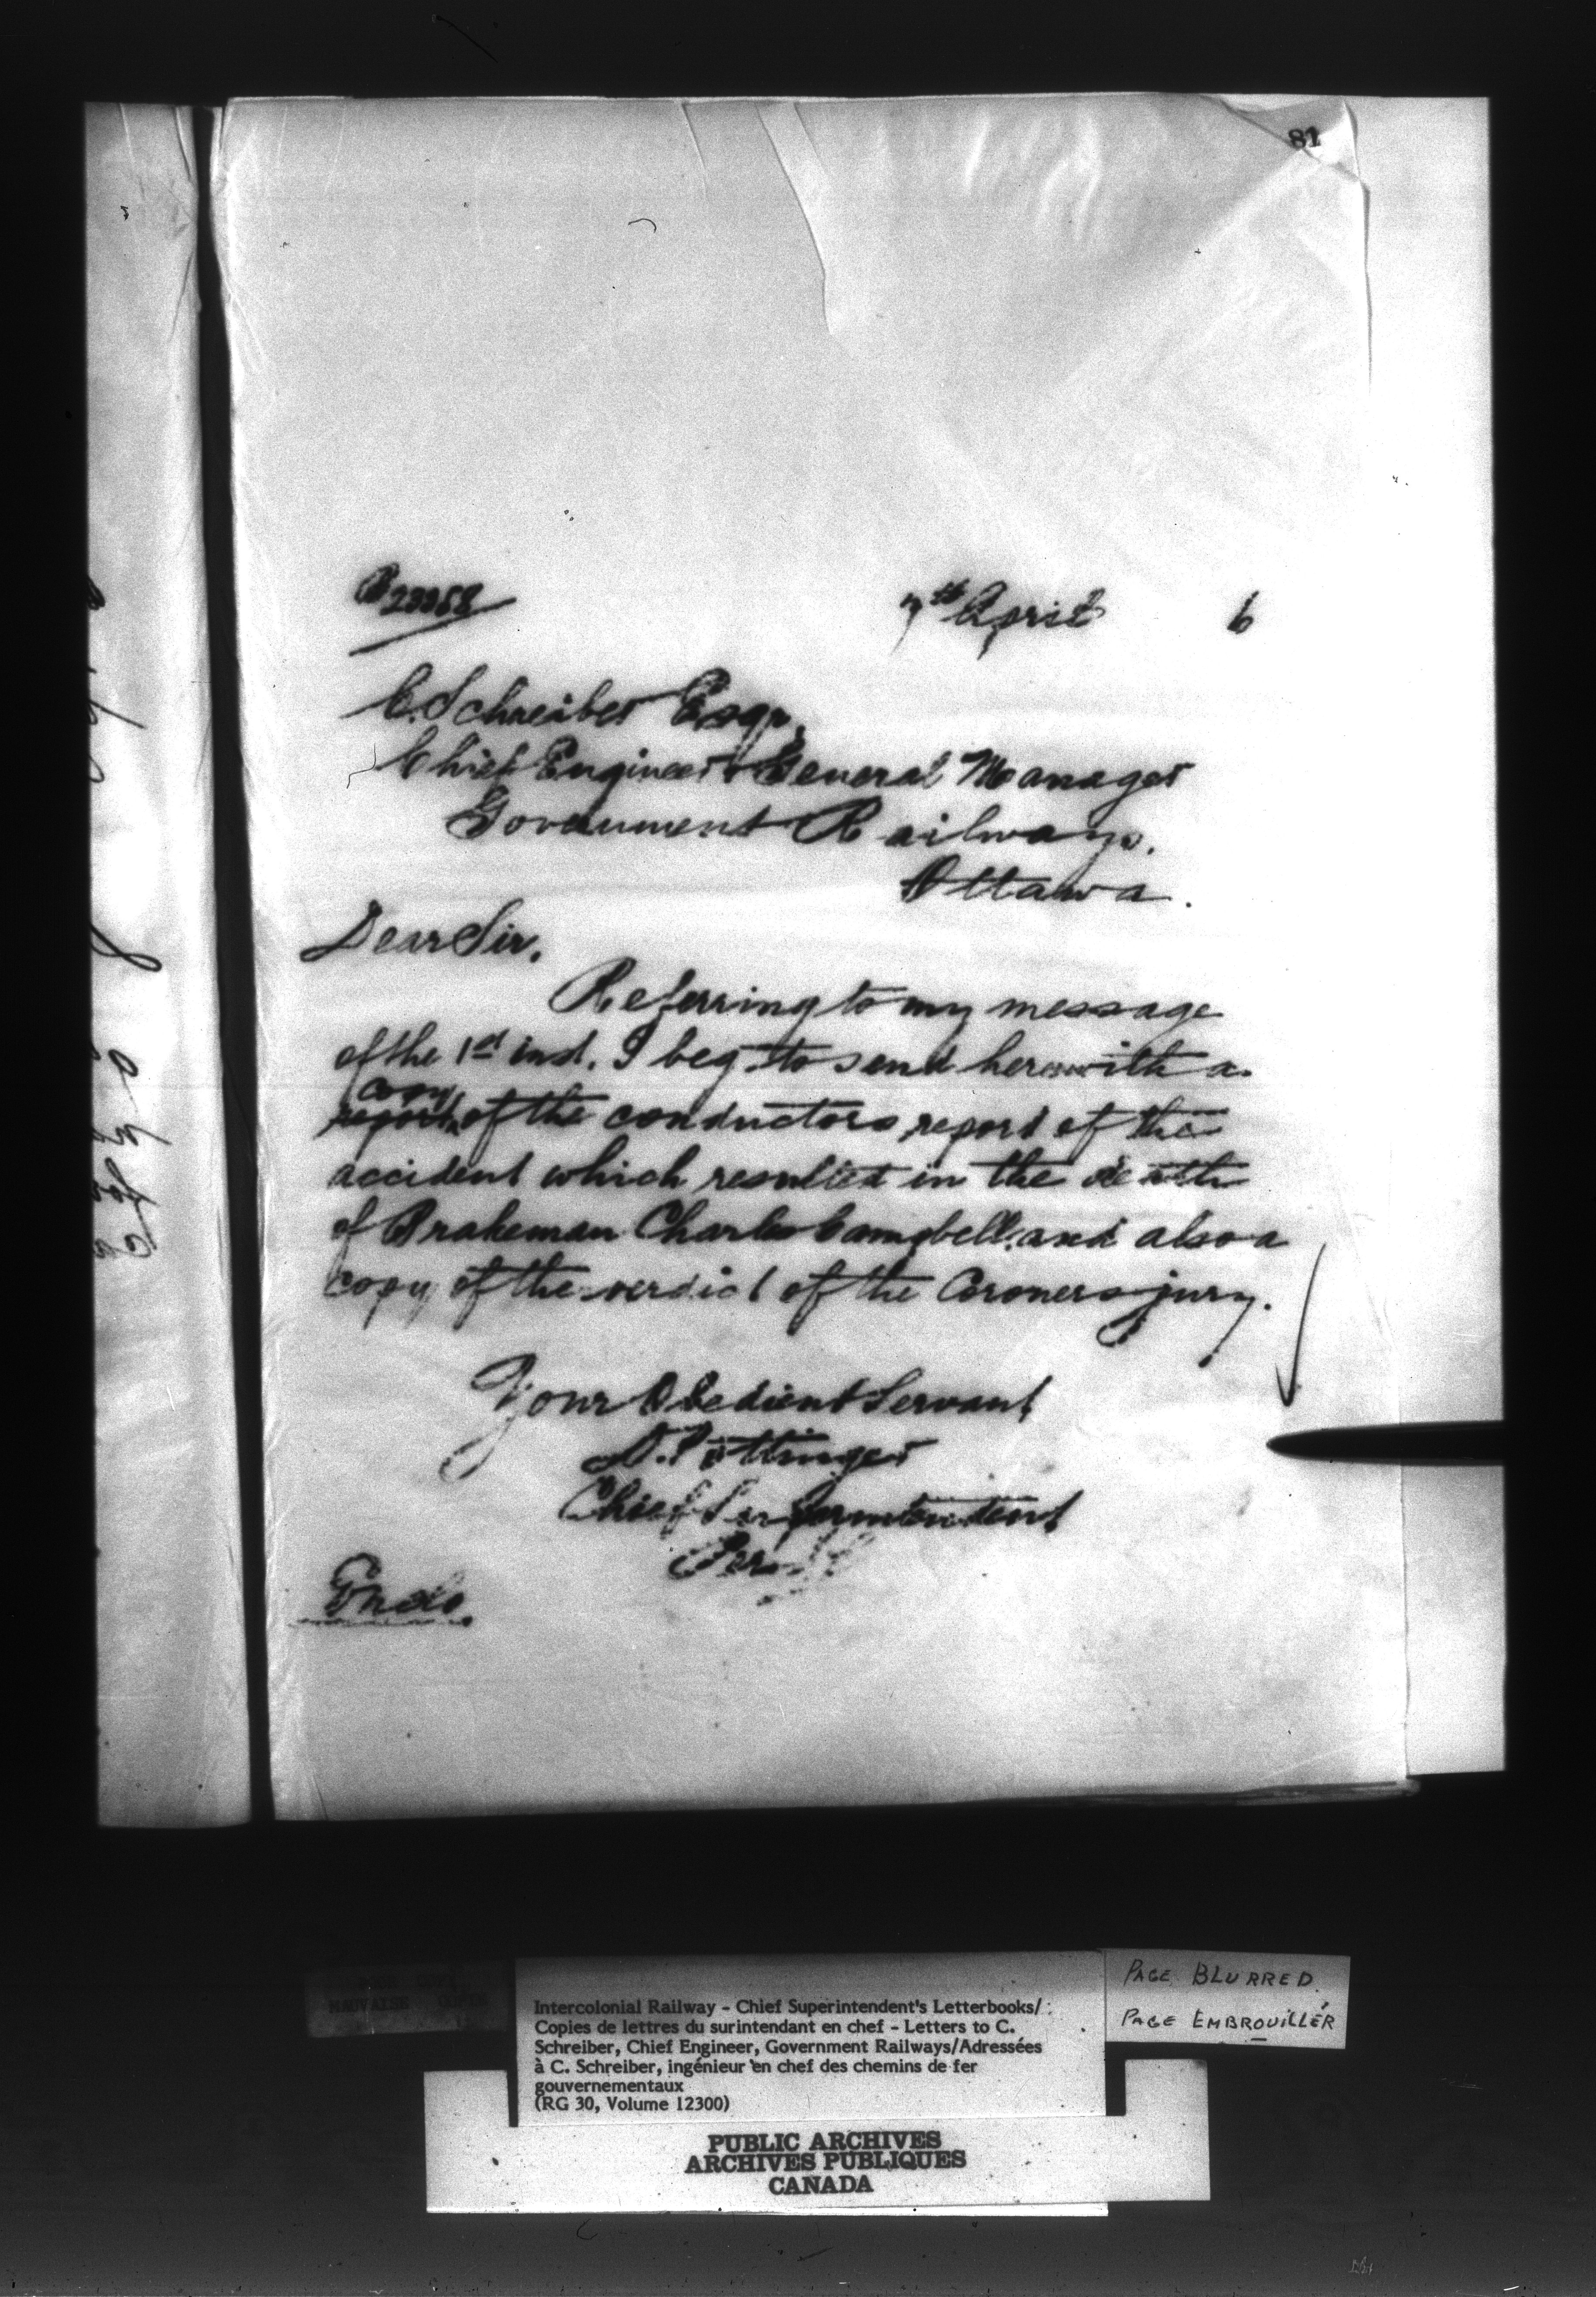 81
7th April 6
C. Schreiber Esqr.
Chief Engineer & General Manager
Government Railways.
Ottawa.
Dear Sir.
Referring to my message
of the 1st inst. I beg to send herewith a
copy
report of the conductors report of the
accident which resulted in the death
of Brakeman Charles Campbell and also a
copy of the verdict of the Coroners jury.
Your Obedient Servant
D. Pottinger
Chief Superintendent
Per
Encls.
Intercolonial Railway - Chief Superintendent's Letterbooks/
Copies de lettres du surintendant en chef - Letters to C.
Schreiber, Chief Engineer, Government Railways/Adressées
à C. Schreiber, ingénieur en chef des chemins de fer
gouvernementaux
(RG 30, Volume 12300)
PAGE BLURRED
PAGE EMBROUILLÉR
PUBLIC ARCHIVES
ARCHIVES PUBLIQUES
CANADA